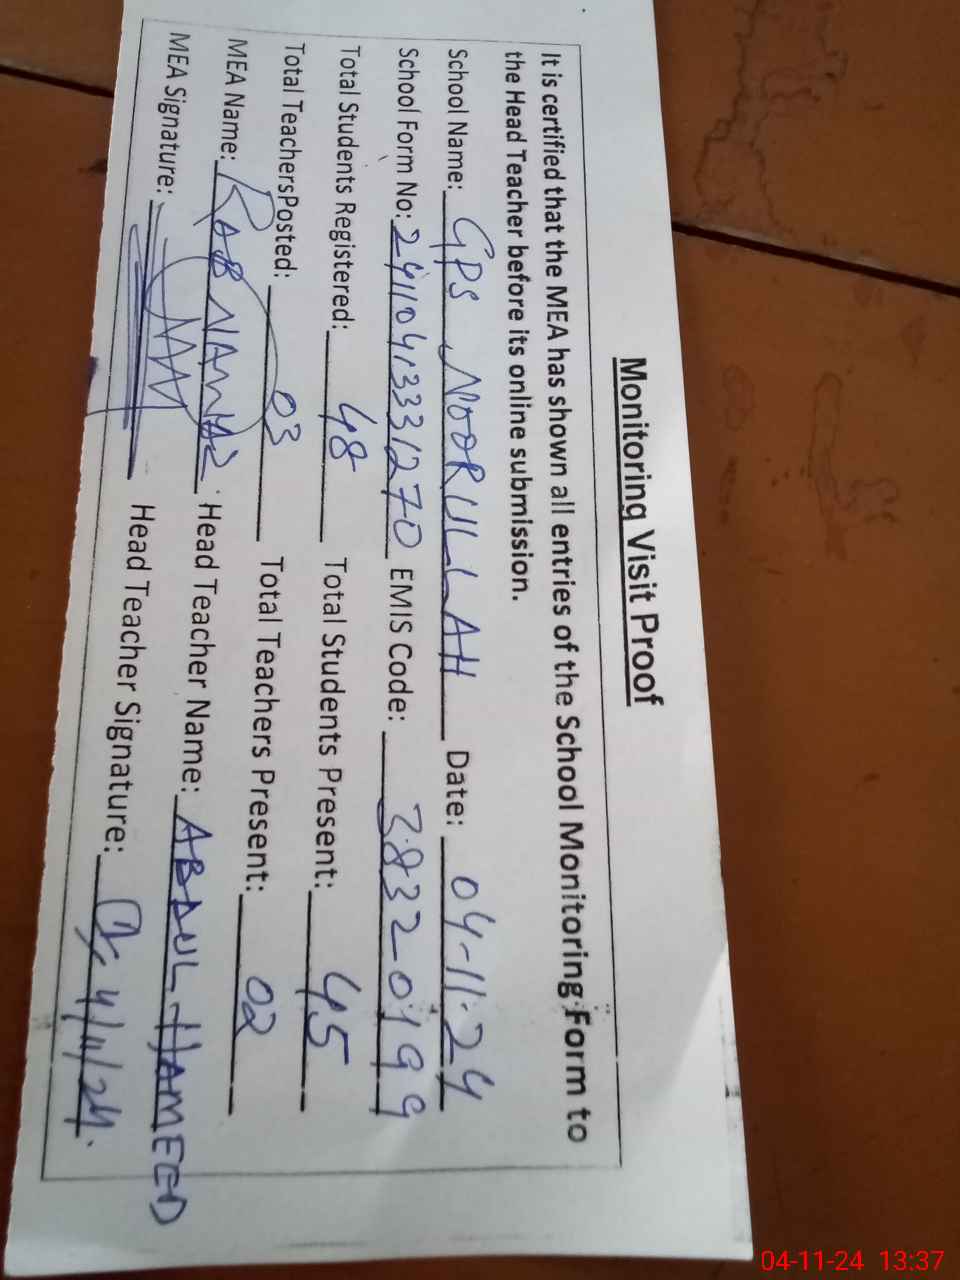 Monitoring Visit Proof
It is certified that the MEA has shown all entries of the School Monitoring Form to
the Head Teacher before its online submission.
School Name: GPS NOORULLAH Date: 04-11-24
School Form No: 24110413331270 EMIS Code: 38320199
Total Students Registered: 48 Total Students Present: 45
Total TeachersPosted: 03 Total Teachers Present: 02
MEA Name: RAB NAWAZ Head Teacher Name: ABDUL HAMEED
MEA Signature: Head Teacher Signature: 4/11/24.
04-11-24 13:37